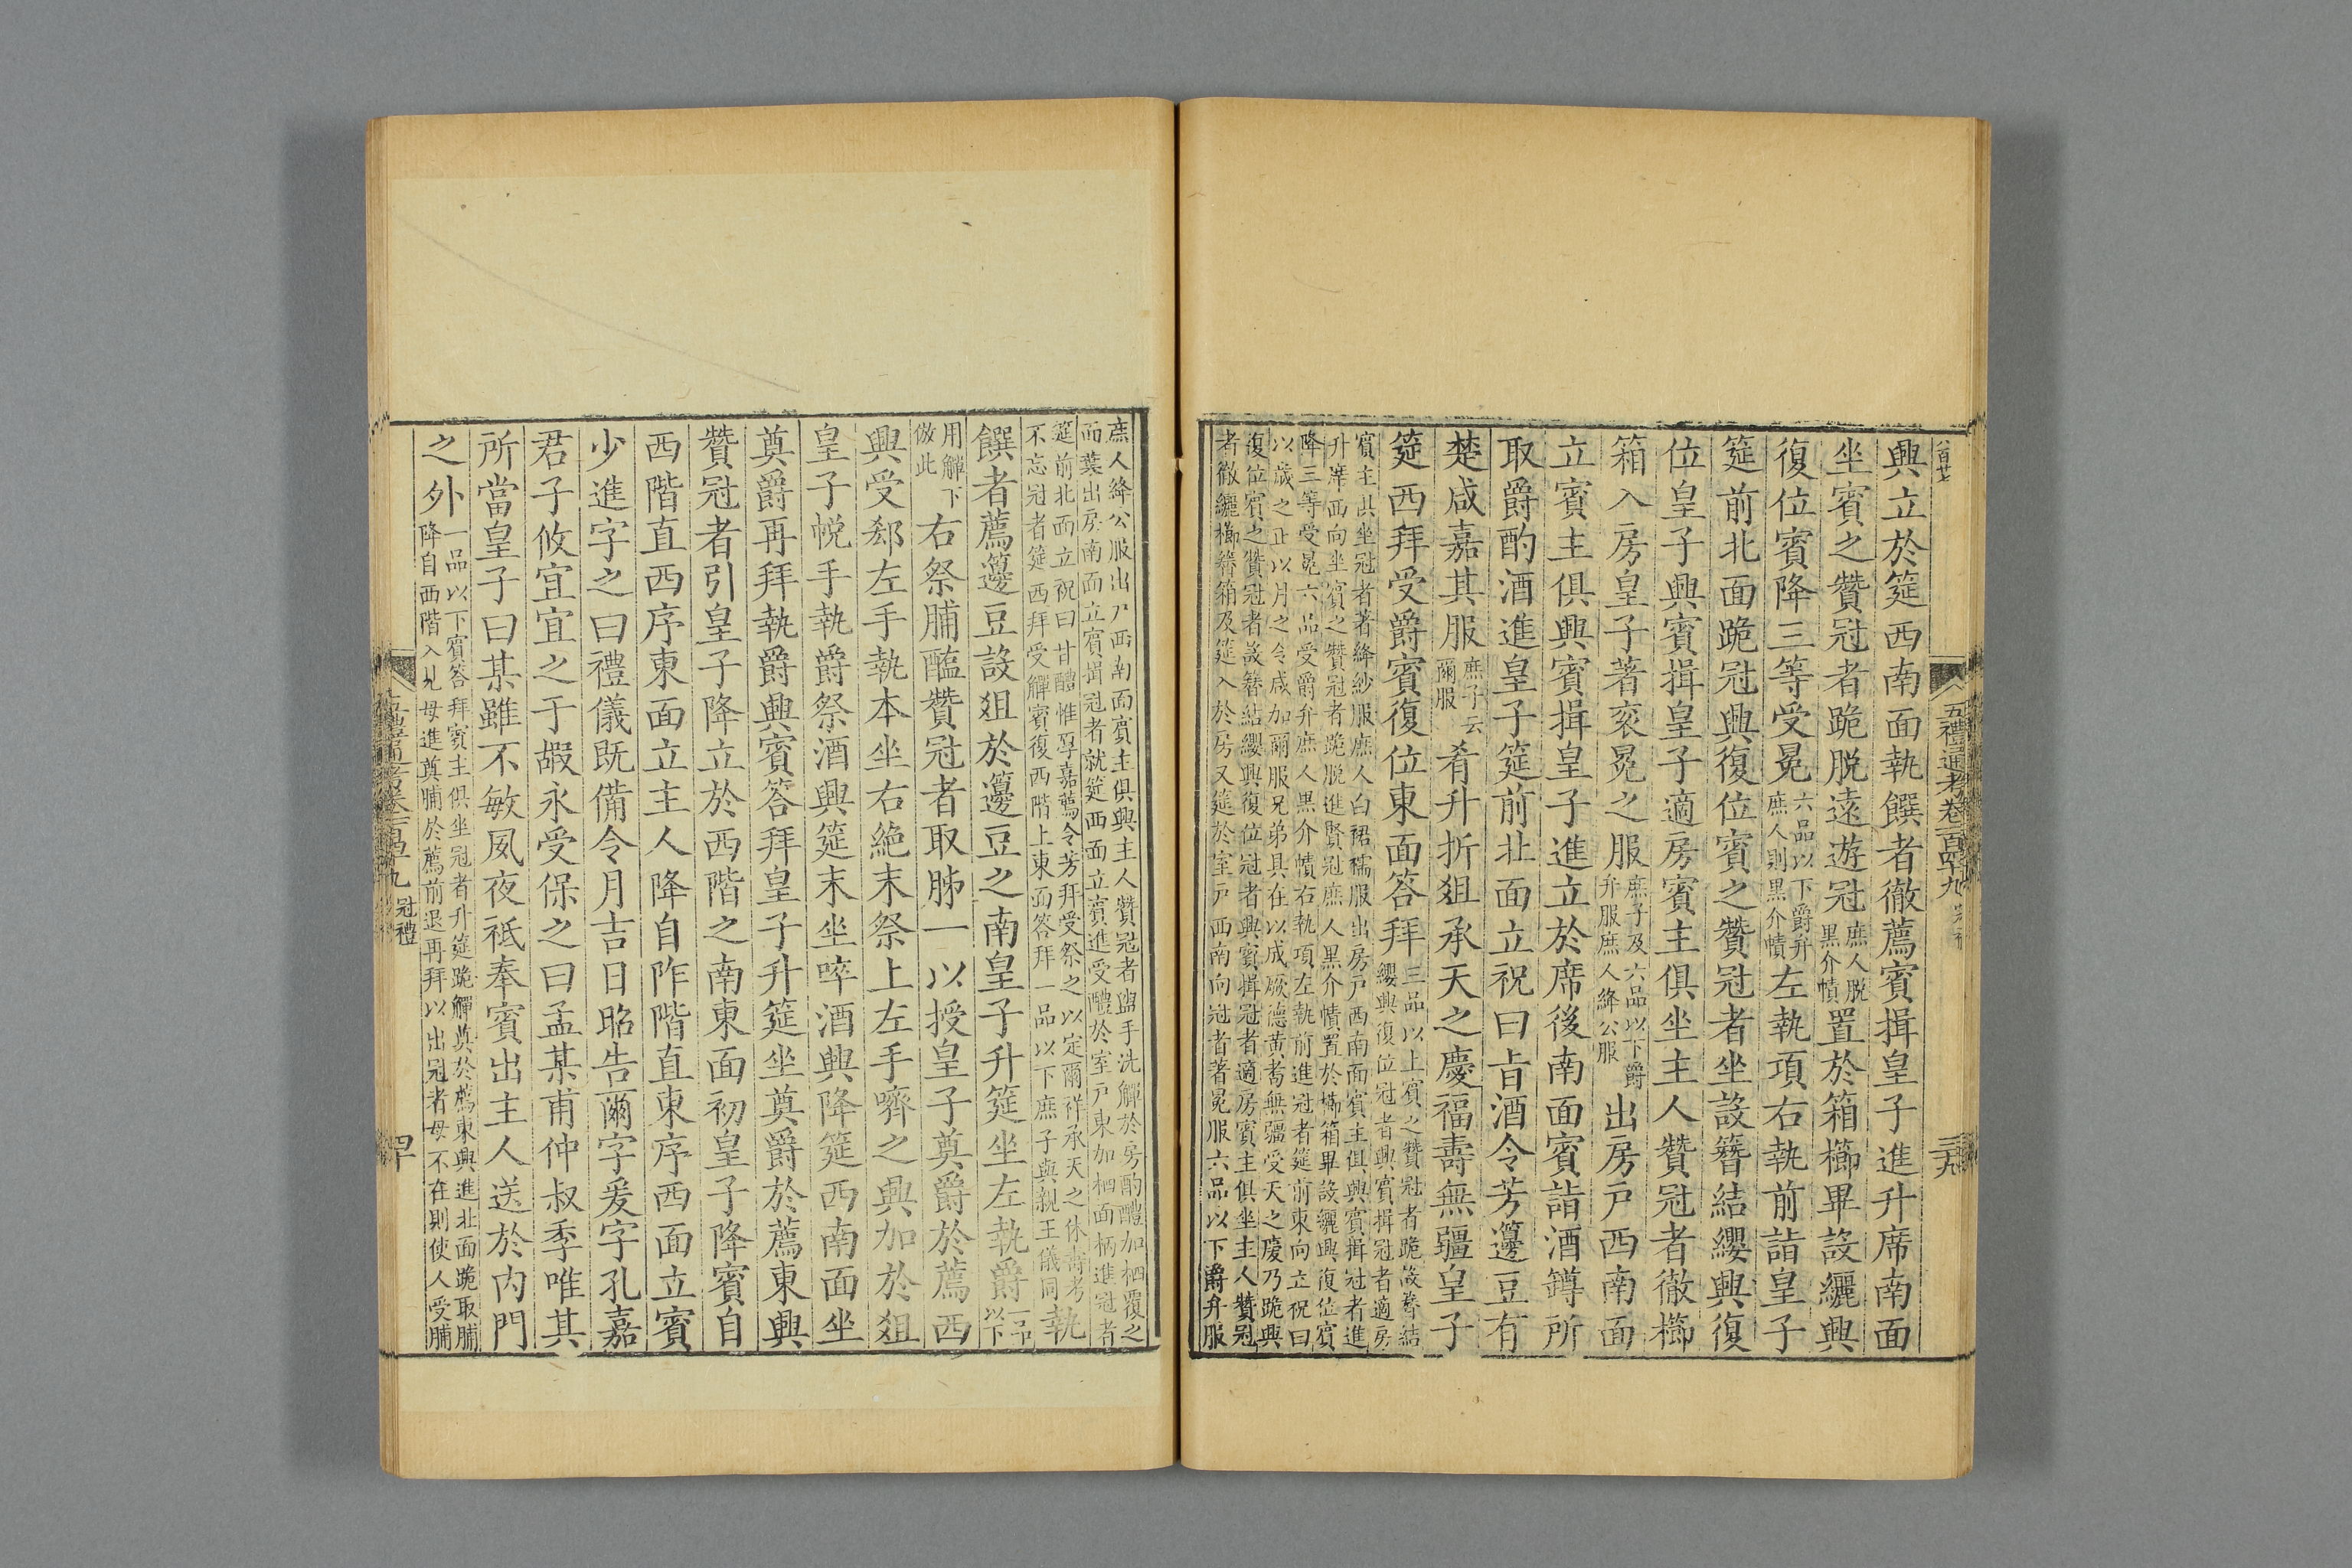 興立於筵西南面執饌者徹薦賓揖皇子進升席南面
坐賓之贊冠者跪脫遠遊冠庶人脫黑介幘置於箱櫛畢設纚興
復位賓降三等受冕六品以下爵弁庶人則黑介幘左執項右執前詣皇子
筵前北面跪冠興復位賓之贊冠者坐設簪結纓興復
位皇子興賓揖皇子適房賓主俱坐主人贊冠者徹櫛
箱入房皇子著衮冕之服庶子及六品以下爵弁服庶人絳公服出房戶西南面
立賓主俱興賓揖皇子進立於席後南面賓詣酒罇所
取爵酌酒進皇子筵前北面立祝曰旨酒令芳籩豆有
楚咸嘉其服庶子云爾服肴升折俎承天之慶福壽無疆皇子
筵西拜受爵賓復位東面答拜三品以上賓之贊冠者跪設簪結
纓興復位冠者興賓揖冠者適房
賓主俱坐冠者著絳紗服庶人白裙襦服出房戶西南面賓主俱興賓揖冠者進
升席西向坐賓之贊冠者跪脫進賢冠庶人黑介幘置於櫛箱畢設纚興復位賓
降三等受冕六品受爵弁庶人黑介幘右執項左執前進冠者筵前東向立祝曰
以歲之正以月之令咸加爾服兄弟具在以成厥德黃耉無疆受天之慶乃跪興
復位賓之贊冠者設簪結纓興復位冠者興賓揖冠者適房賓主俱坐主人贊冠
者徹纚櫛簪箱及筵入於房又筵於室戶西南向冠者著冕服六品以下爵弁服
五禮通考卷一百四十九
三十九
庶人絳公服出戶西南面賓主俱興主人贊冠者盥手洗觶於房酌醴加柶覆之
面葉出房南面立賓揖冠者就筵西面立賓進受醴於室戶東加柶面柄進冠者
筵前北面立祝曰甘醴惟厚嘉薦令芳拜受祭之以定爾祥承天之休壽考
不忘冠者筵西拜受觶賓復西階上東面答拜一品以下庶子與親王儀同執
饌者薦籩豆設俎於籩豆之南皇子升筵坐左執爵一品以下
用觶下倣此右祭脯醢贊冠者取肺一以授皇子奠爵於薦西
興受郄左手執本坐右絶末祭上左手嚌之興加於俎
皇子帨手執爵祭酒興筵末坐啐酒興降筵西南面坐
奠爵再拜執爵興賓答拜皇子升筵坐奠爵於薦東興
贊冠者引皇子降立於西階之南東面初皇子降賓自
西階直西序東面立主人降自阼階直東序西面立賓
少進字之曰禮儀既備令月吉日昭告爾字爰字孔嘉
君子攸宜宜之于嘏永受保之曰孟某甫仲叔季唯其
所當皇子曰某雖不敏夙夜祗奉賓出主人送於內門
之外一品以下賓答拜賓主俱坐冠者升筵跪觶奠於薦東興進北面跪取脯
降自西階入見母進奠脯於薦前退再拜以出冠者母不在則使人受脯
冠禮